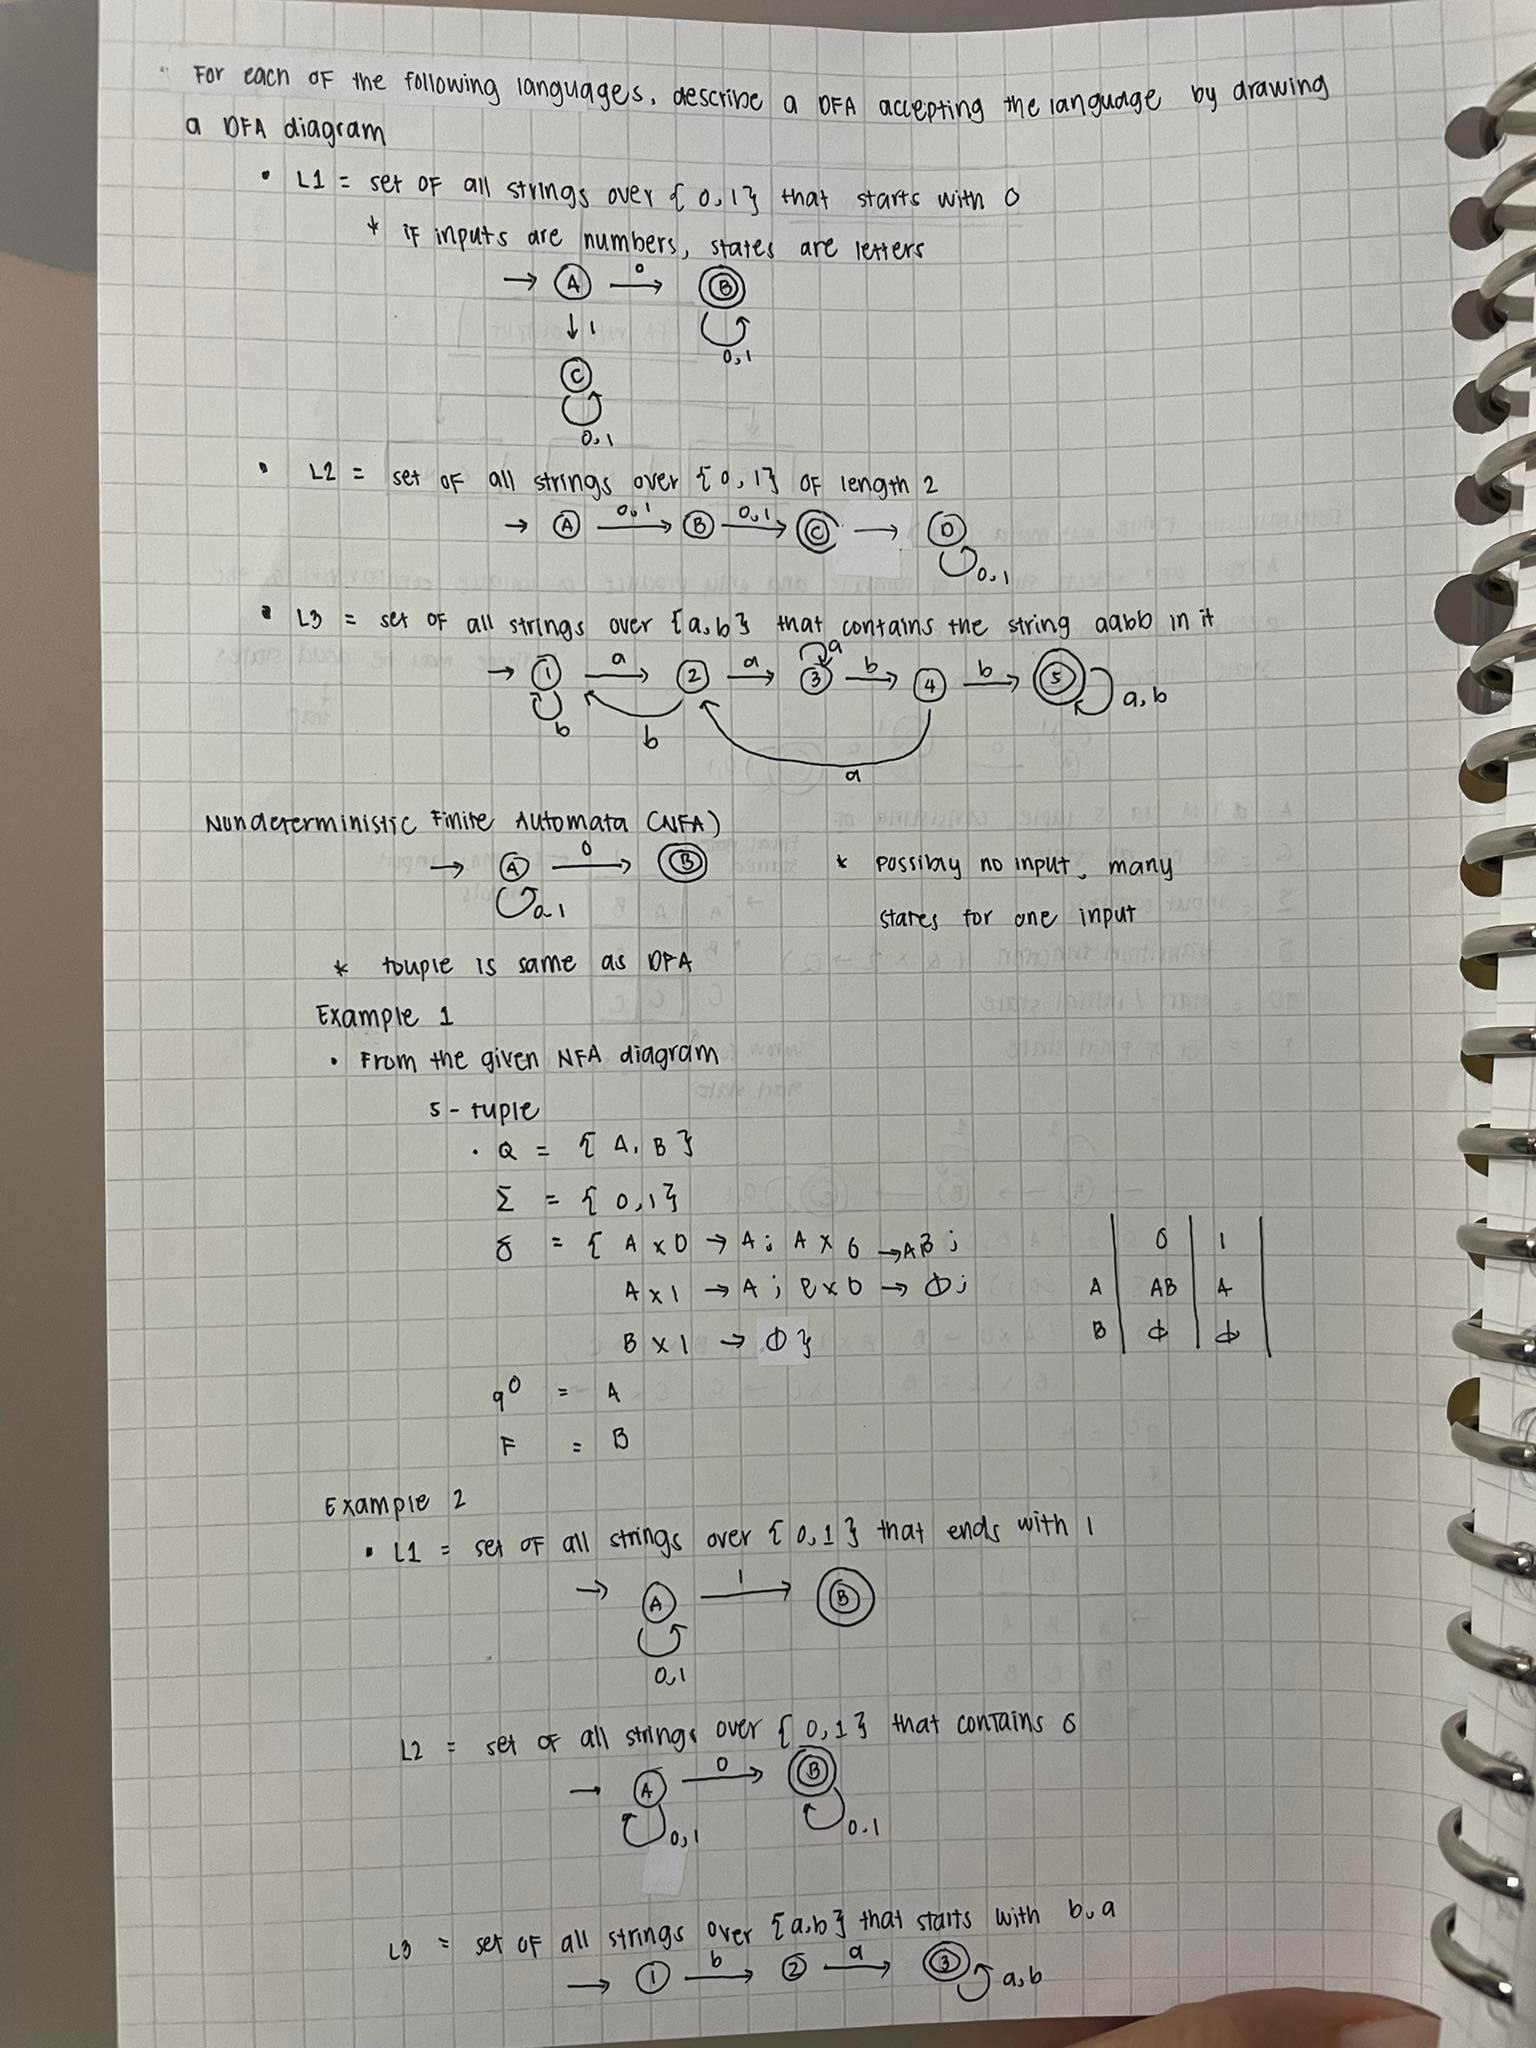 For each of the following languages, describe a DFA accepting the language by drawing
a DFA diagram
• L1 = set of all strings over {0,1} that starts with 0
* if inputs are numbers, states are letters
→ A 0→ B
↓1 0,1
C
0,1
• L2 = set of all strings over {0,1} of length 2
→ A 0,1→ B 0,1→ C → D
0,1
• L3 = set of all strings over {a,b} that contains the string aabb in it
a
→ 1 a→ 2 a→ 3 b→ 4 b→ 5 a,b
b b
a
Nondeterministic Finite Automata (NFA)
→ A 0→ B * possibly no input, many
0,1 states for one input
* touple is same as DFA
Example 1
• From the given NFA diagram
5-tuple
• Q = {A, B}
Σ = {0,1}
δ = { A x 0 → A; A x 0 → AB; 0 1
A x 1 → A; B x 0 → ϕ; A AB A
B x 1 → ϕ} B ϕ ϕ
q0 = A
F = B
Example 2
• L1 = set of all strings over {0,1} that ends with 1
→ A 1→ B
0,1
L2 = set of all strings over {0,1} that contains 0
→ A 0→ B
0,1 0,1
L3 = set of all strings over {a,b} that starts with b,a
→ 1 b→ 2 a→ 3 a,b